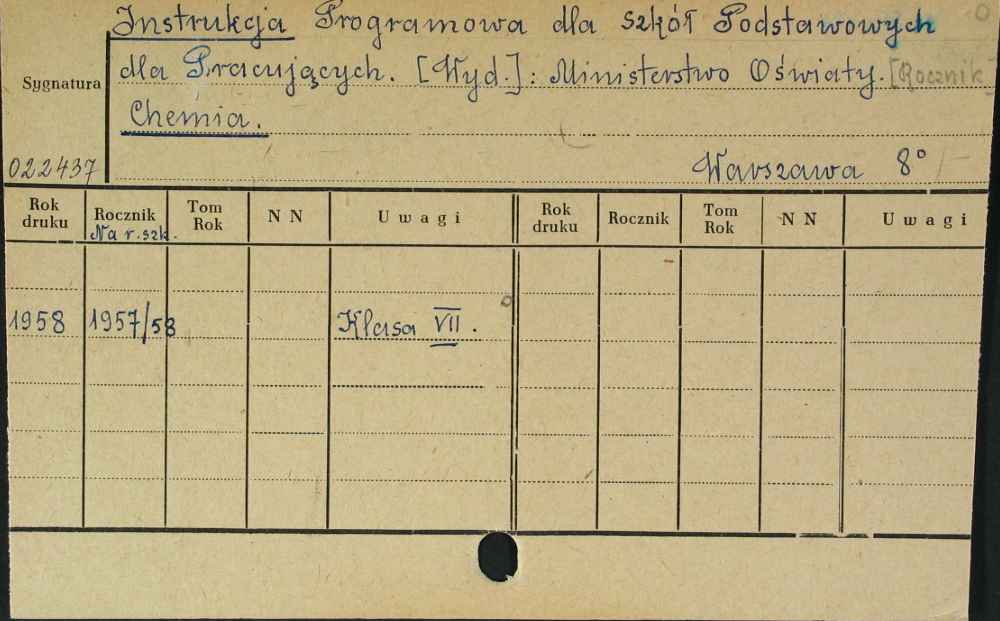 Instrukcja Programowa dla szkół Podstawowych
dla Pracujących. [Wyd.]: Ministerstwo Oświaty. [Rocznik]
Sygnatura
Chemia.
022437
Warszawa 8°
Rok druku Rocznik Na r. szk. Tom Rok N N Uwagi Rok druku Rocznik Tom Rok N N Uwagi
1958 1957/58 Klasa VII.